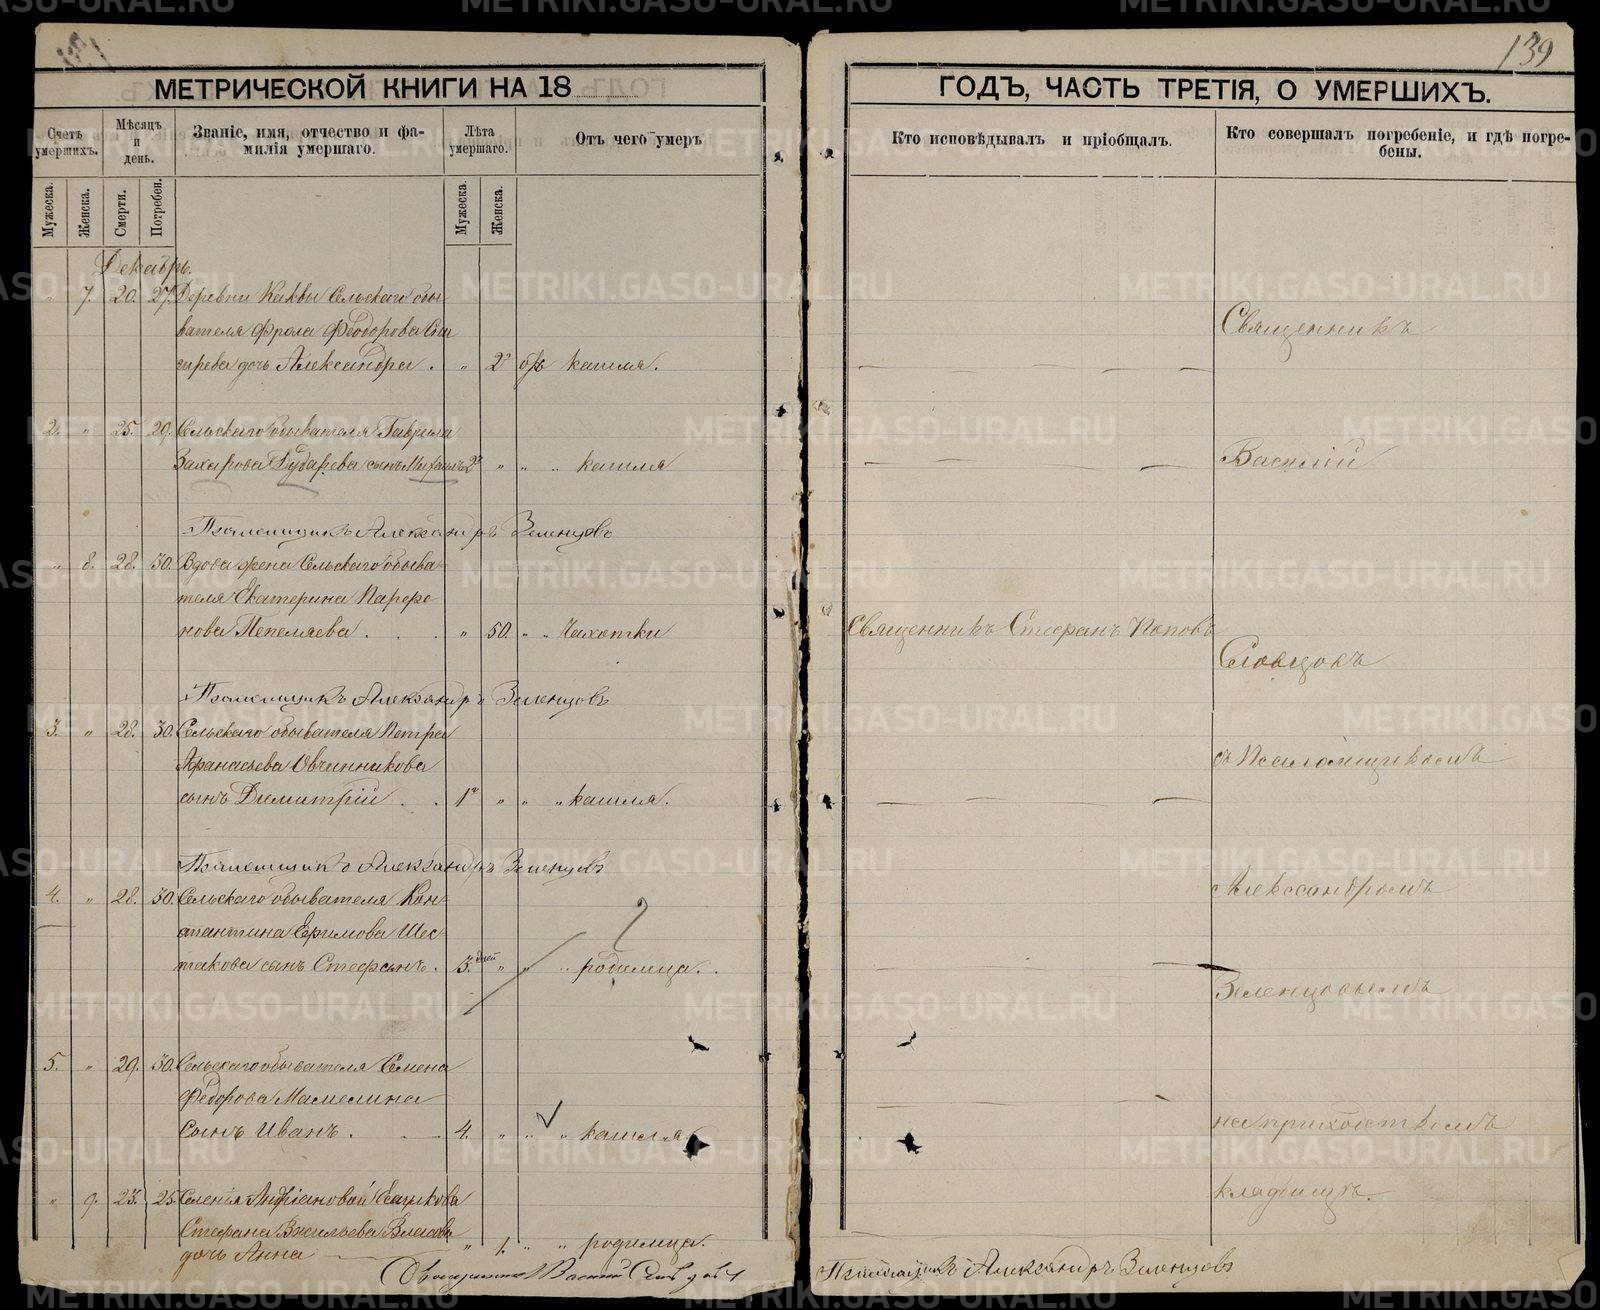 139
МЕТРИЧЕСКОЙ КНИГИ НА 18
ГОДЪ, ЧАСТЬ ТРЕТІЯ, О УМЕРШИХЪ.
Счетъ умершихъ.
Мѣсяцъ и день.
Званіе, имя, отчество и фа-
милія умершаго.
Лѣта умершаго.
Отъ чего умеръ
Кто исповѣдывалъ и пріобщалъ.
Кто совершалъ погребеніе, и гдѣ погре-
бены.
Мужеска.
Женска.
Смерти.
Погребен.
Мужеска.
Женска.
Декабрь.
" 7. 20. 27. Деревни Каквы Сельскаго обы-
вателя Фрола Феодорова
дочь Александра . " 2 отъ кашля.
Священникъ
2. " 25. 29. Сельскаго обывателя Гаврила
Захарова Дударева сынъ Михаилъ 2 " " " кашля
Василій
Псаломщикъ Александръ Зеленцовъ
" 8. 28. 30. Вдова жена Сельскаго обыва-
теля Екатерина Парфе
нова Пепеляева . . . " 50. " " Чахотки
Священникъ Стефанъ Поповъ
Словцовъ
Псаломщикъ Александръ Зеленцовъ
3. " 28. 30. Сельскаго обывателя Петра
Афанасьева Овчинникова
сынъ Димитрій . . 1 " " " кашля.
съ Псаломщикомъ
Псаломщикъ Александръ Зеленцовъ
4. " 28. 30. Сельскаго обывателя Кон-
стантина Ефимова Шес-
такова сынъ Стефанъ. 3. дней " " " родимца.
Александромъ
Зеленцовымъ
5. " 29. 30. Сельскаго обывателя Семена
Федорова Мамелина
сынъ Иванъ. 4. " " " кашля
на приходскомъ
" 9. 23. 25. Селенія Андріановой
Стефана Васильева Власова
дочь Анна " 1. " " родимца.
кладбищѣ.
Священникъ Василій Словцовъ
Псаломщикъ Александръ Зеленцовъ
METRIKI.GASO-URAL.RU